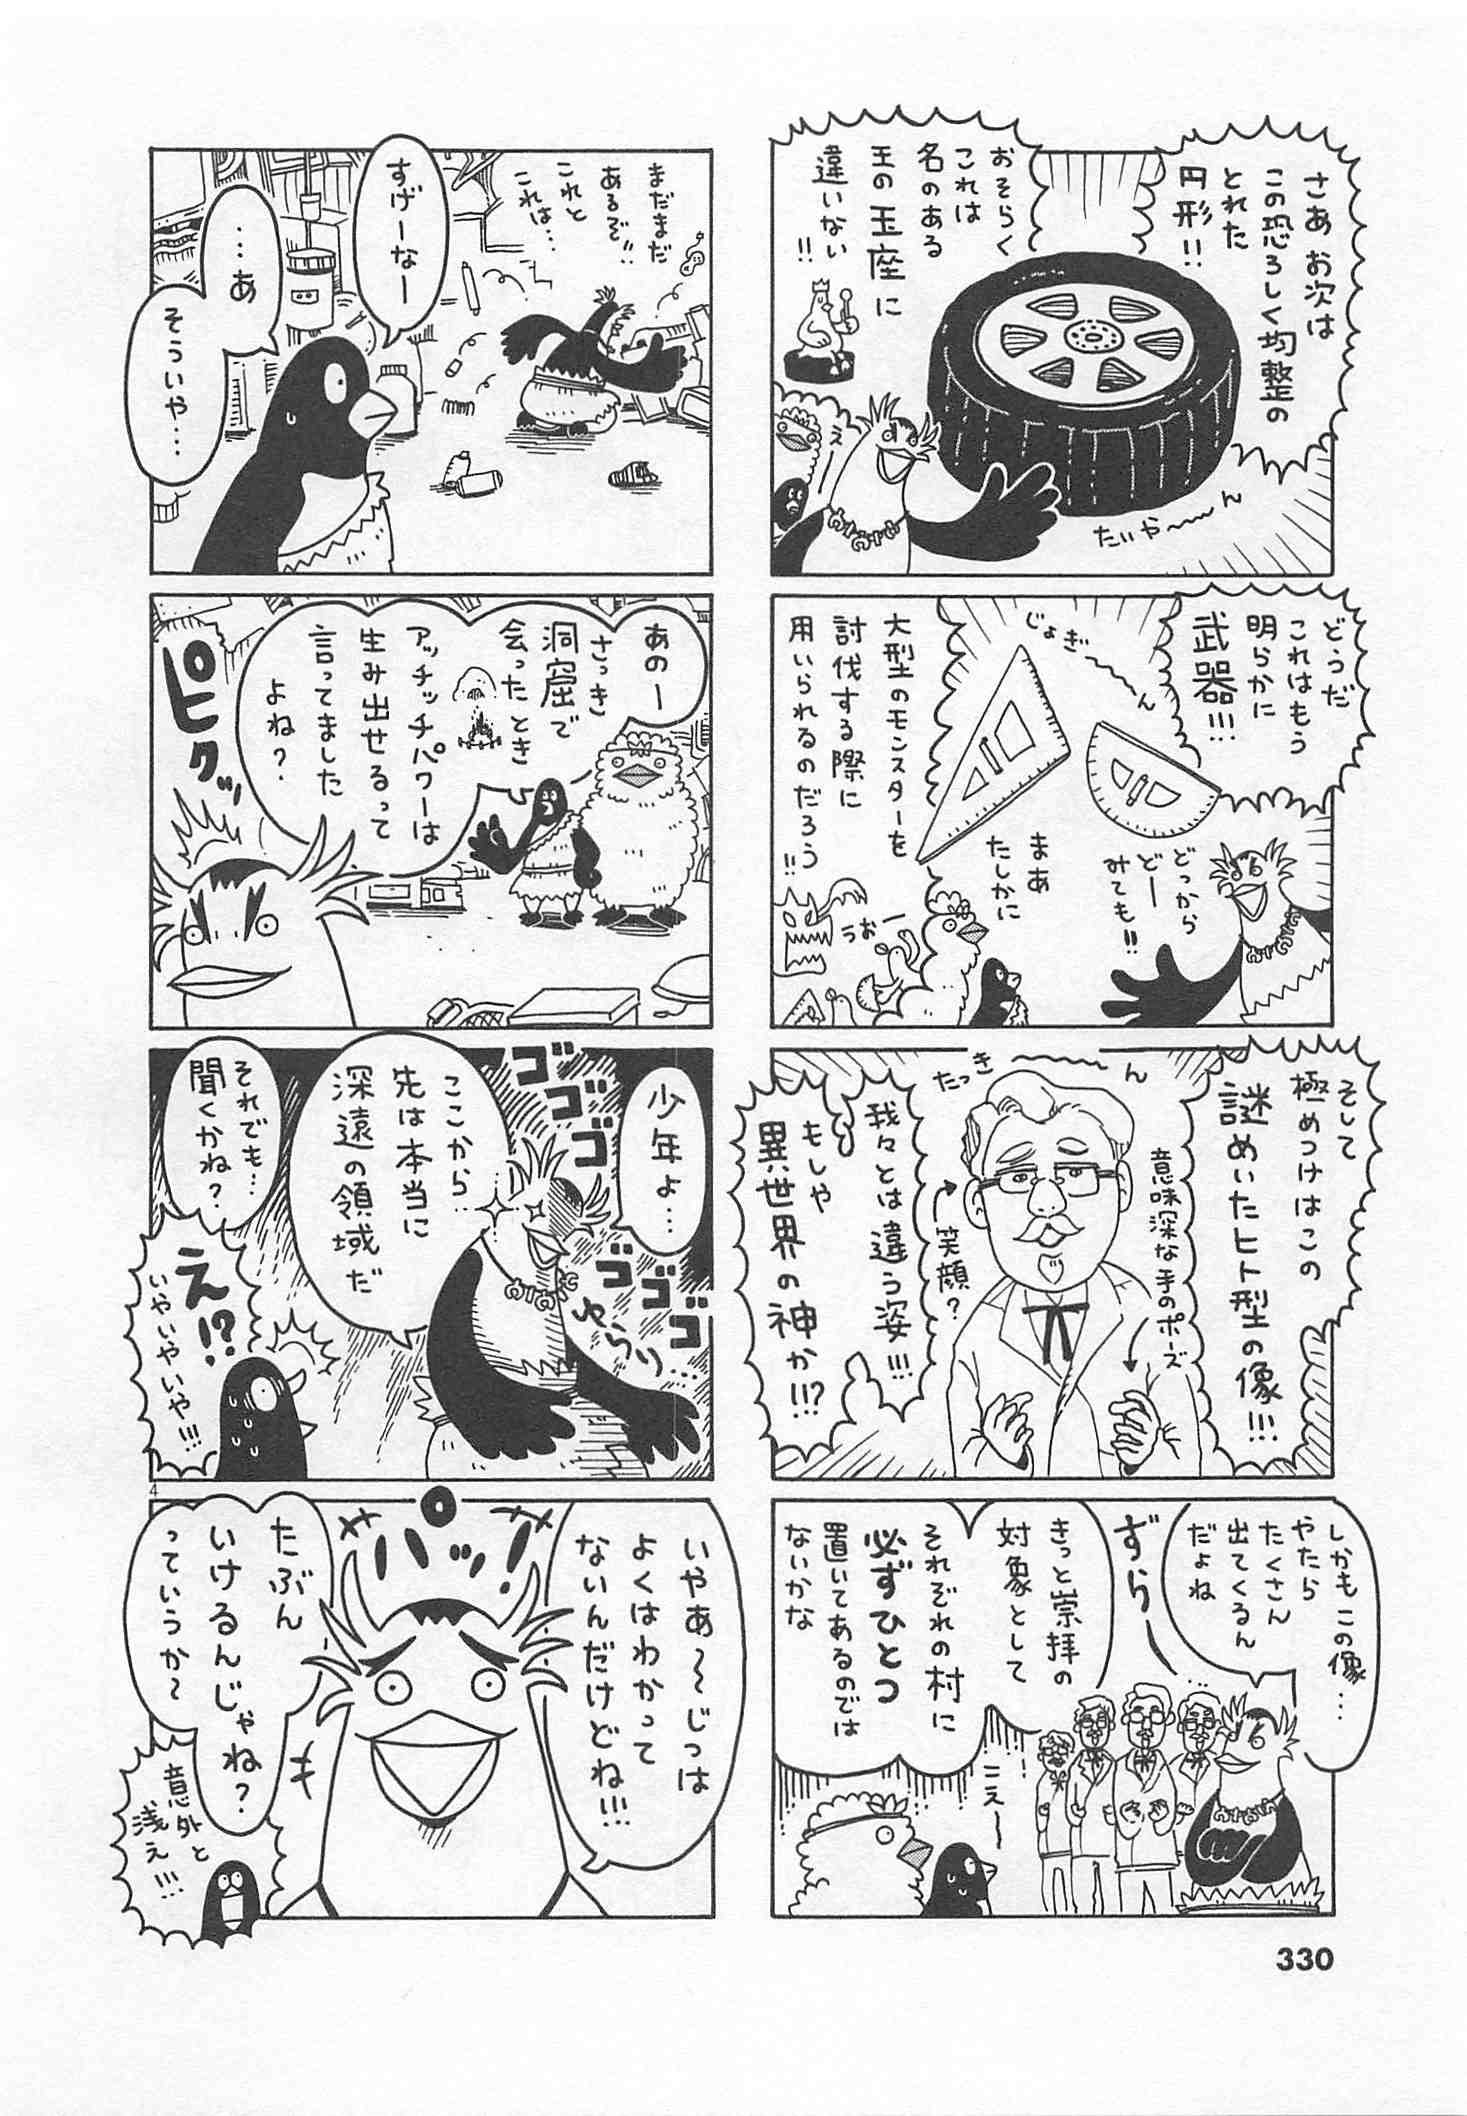 さあ お次は
この恐ろしく均整の
とれた
円形!!
おそらく
これは
名のある
王の玉座に
違いない
!!
え
たいや〜〜ん
どうだ
これはもう
明らかに
武器!!!
じょぎ〜〜ん
大型のモンスターを
討伐する際に
用いられるのだろう!!
どっから
どー
みても!!
まあ
たしかに
うおー
そして
極めつけはこの
謎めいたヒト型の像!!!
たっき〜〜ん
意味深な手のポーズ
笑顔?
我々とは違う姿!!!
もしや
異世界の神か!!?
しかもこの像…
やたら
たくさん
出てくるん
だよね
ずらーっ
きっと崇拝の
対象として
それぞれの村に
必ずひとつ
置いてあるのでは
ないかな
こえー
330
まだまだ
あるぞ!!
これと
これは…
すげーなー
…あ
そういや…
あのー
さっき
洞窟で
会ったとき
アッチッチパワーは
生み出せるって
言ってました
よね?
ピクッ
少年よ…
ここから
先は本当に
深遠の領域だ
ゴゴゴゴ
ゴゴゴゴ
ゆらり…
それでも…
聞くかね?
え!?
いやいやいや!!!
4
いやあ〜〜じつは
よくはわかって
ないんだけどね!!!
パッ!
たぶん
いけるんじゃね?
っていうか〜
意外と
浅え!!!